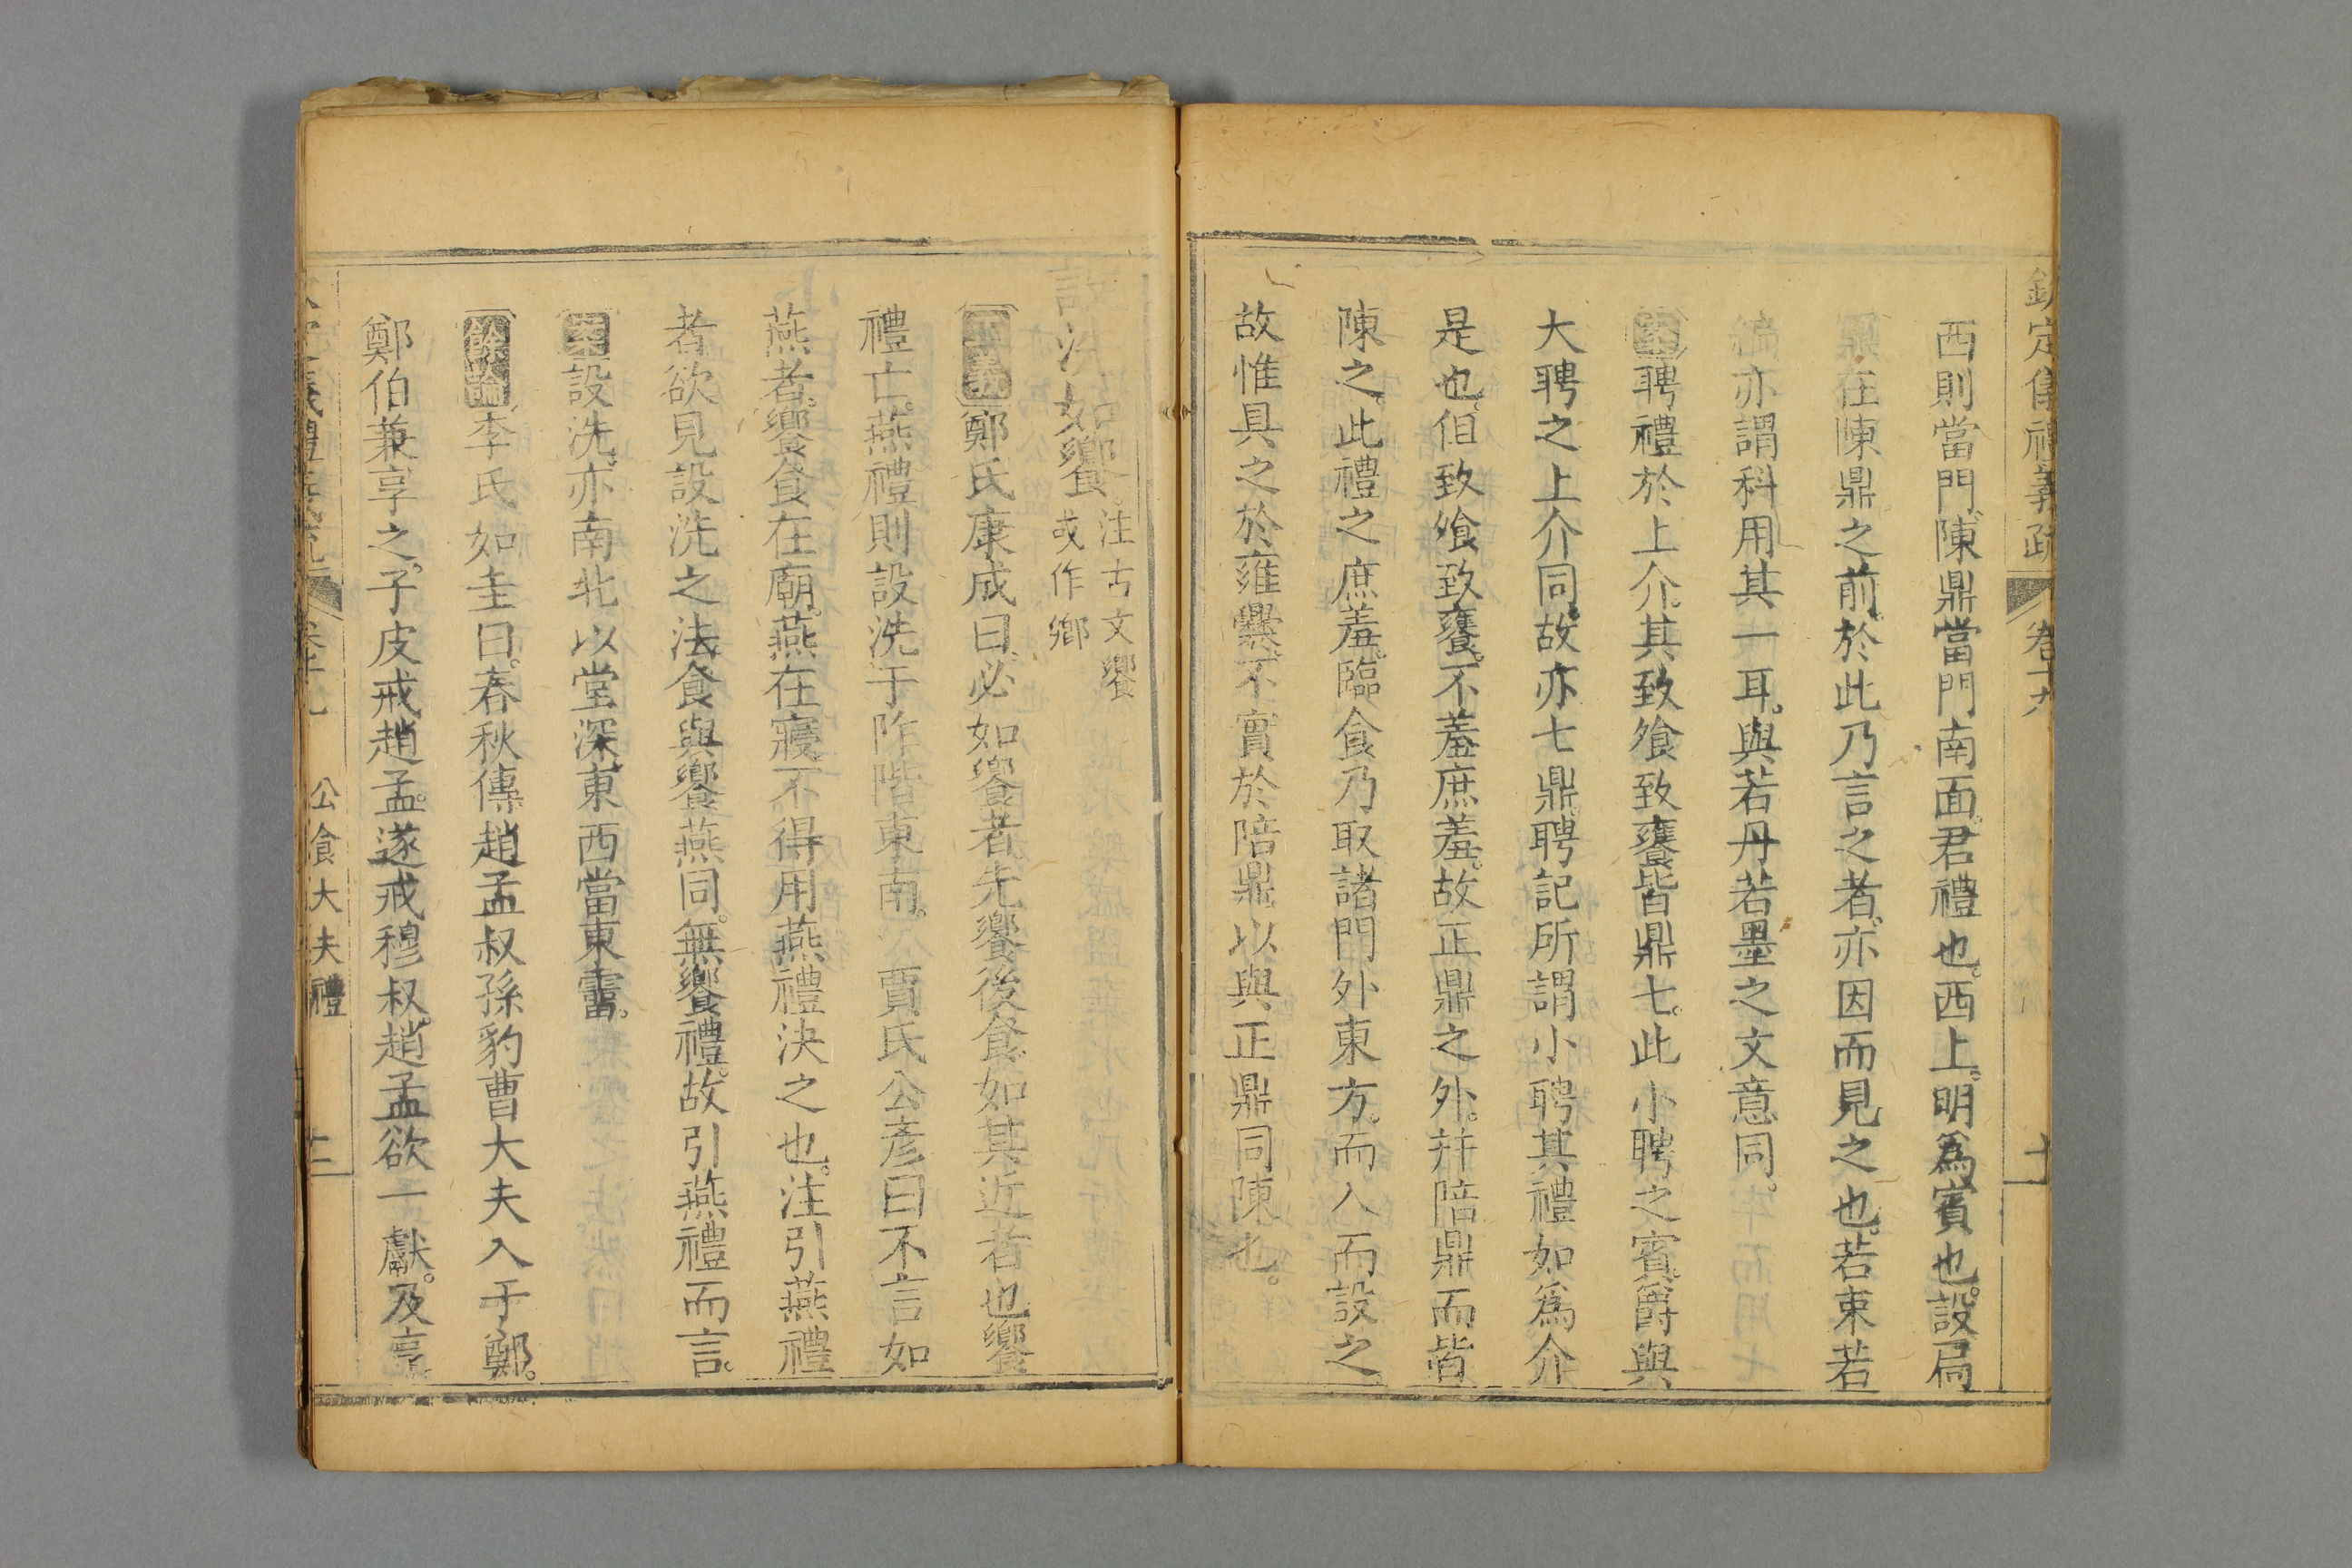 欽定儀禮義疏 卷十九 十一
西則當門陳鼎當門南面君禮也。西上。明爲賓也。設扃
鼏在陳鼎之前。於此乃言之者。亦因而見之也。若束若
編。亦謂科用其一耳。與若丹若墨之文意同。
案聘禮於上介。其致飧致饔皆鼎七。此小聘之賓爵與
大聘之上介同。故亦七鼎。聘記所謂小聘其禮如爲介
是也。但致飧致饔。不羞庶羞。故正鼎之外。并陪鼎而皆
陳之。此禮之庶羞。臨食乃取諸門外東方。而入而設之
故惟具之於雍爨。不實於陪鼎以與正鼎同陳也。
設洗如饗。注古文饗或作鄉
正義鄭氏康成曰。必如饗者。先饗後食。如其近者也。饗
禮亡。燕禮則設洗于阼階東南。 賈氏公彥曰。不言如
燕者。饗食在廟。燕在寢。不得用燕禮決之也。注引燕禮
者。欲見設洗之法。食與饗燕同。無饗禮。故引燕禮而言。
案設洗。亦南北以堂深。東西當東霤。
餘論李氏如圭曰。春秋傳趙孟叔孫豹曹大夫入于鄭。
鄭伯兼享之。子皮戒趙孟。遂戒穆叔。趙孟欲一獻。及享。
儀禮義疏 卷十九 公食大夫禮 十二